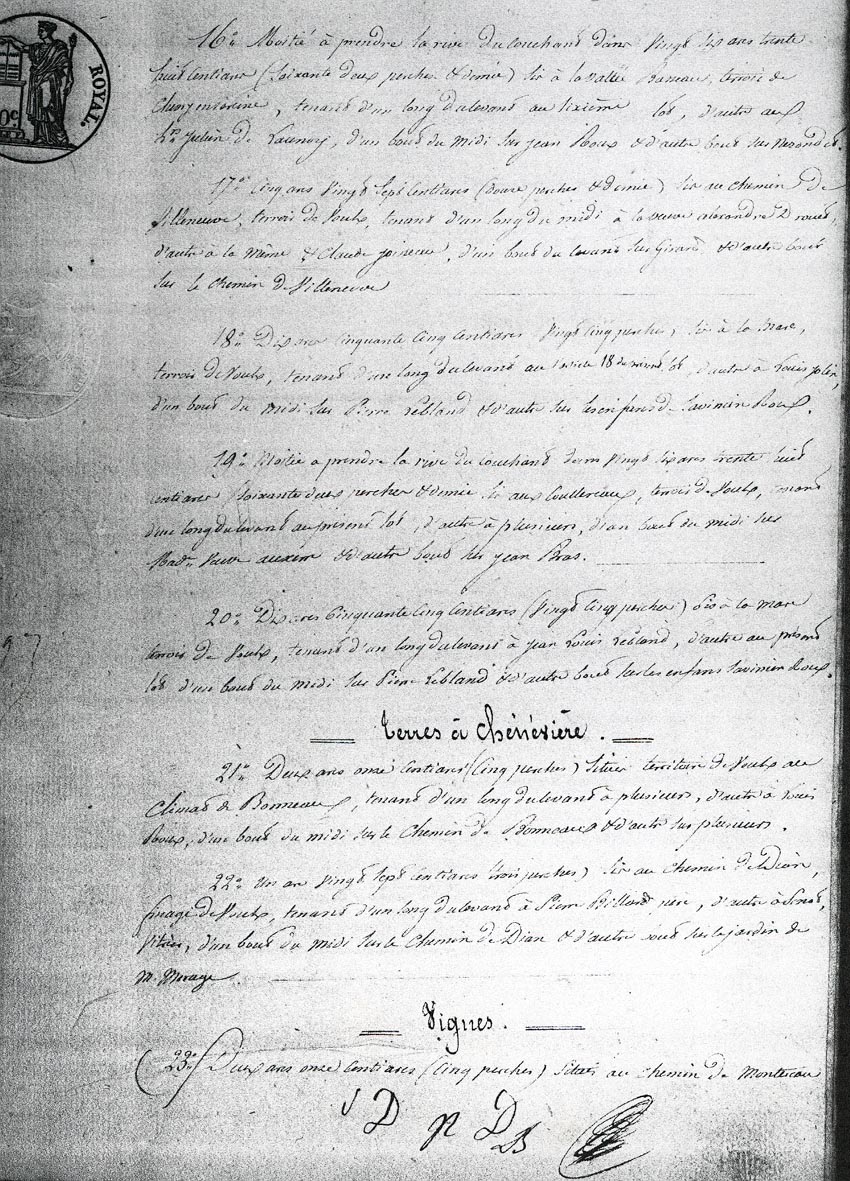 ROYAL.
16° Moitié à prendre la rive du couchant dans Vingt six ares trente
huit Centiares (Soixante deux perches & demie) sis à la Vallée terroir de
tenant d'un long du levant au sixième lot, d'autre aux
Julien de Launoy, d'un bout du midi sur jean Roux & d'autre bout sur
17° Cinq ares Vingt Sept Centiares (Douze perches & demie) sis au chemin de
Villeneuve, terroir de Voulx, tenant d'un long du midi à la veuve alexandre
d'autre à la même & Claude d'un bout du levant sur Girard & d'autre bout
sur le Chemin de Villeneuve
18° Dix ares Cinquante Cinq Centiares Vingt Cinq perches) sis à la Mare,
terroir de Voulx, tenant d'un long du levant au lot, d'autre à Louis
d'un bout du midi sur Pierre Lebland & d'autre sur les enfans de Savinien Roux.
19° Moitié a prendre la rive du Couchant dans Vingt six ares trente huit
centiares Soixante deux perches & demie sis aux terroir de Voulx, tenant
d'un long du levant au présent lot, d'autre à plusieurs, d'un bout du midi sur
Mad. Veuve & d'autre bout sur jean Bras.
20° Dix ares Cinquante Cinq Centiares (Vingt Cinq perches) sis à la mare
terroir de Voulx, tenant d'un long du levant à jean Louis Lebland, d'autre au présent
lot d'un bout du midi sur Pierre Lebland & d'autre bout sur les enfans Savinien Roux.
Terres à Chénevière.
21° Deux ares onze Centiares (Cinq perches) Situés territoire de Voulx au
Climat de Bonneaux, tenant d'un long du levant à plusieurs, d'autre à Louis
Roux, d'un bout du midi sur le Chemin de Bonneaux & d'autre sur plusieurs.
22° Un are Vingt Sept Centiares trois perches) sis au Chemin de Dian,
finage de Voulx, tenant d'un long du levant à Pierre Billard père, d'autre à
d'un bout du midi sur le Chemin de Dian & d'autre bout sur le jardin de
M.
Vignes.
(23° Deux ares onze Centiares (Cinq perches) Situés au Chemin de Montereau